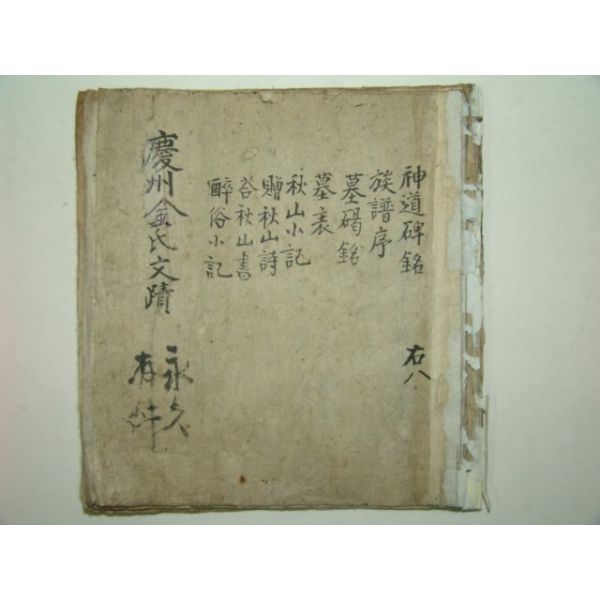 神道碑銘
族譜序
墓碣銘
墓表
秋山小記
贈秋山詩
答秋山書
醉俗小記
右八
慶州金氏文蹟
永久